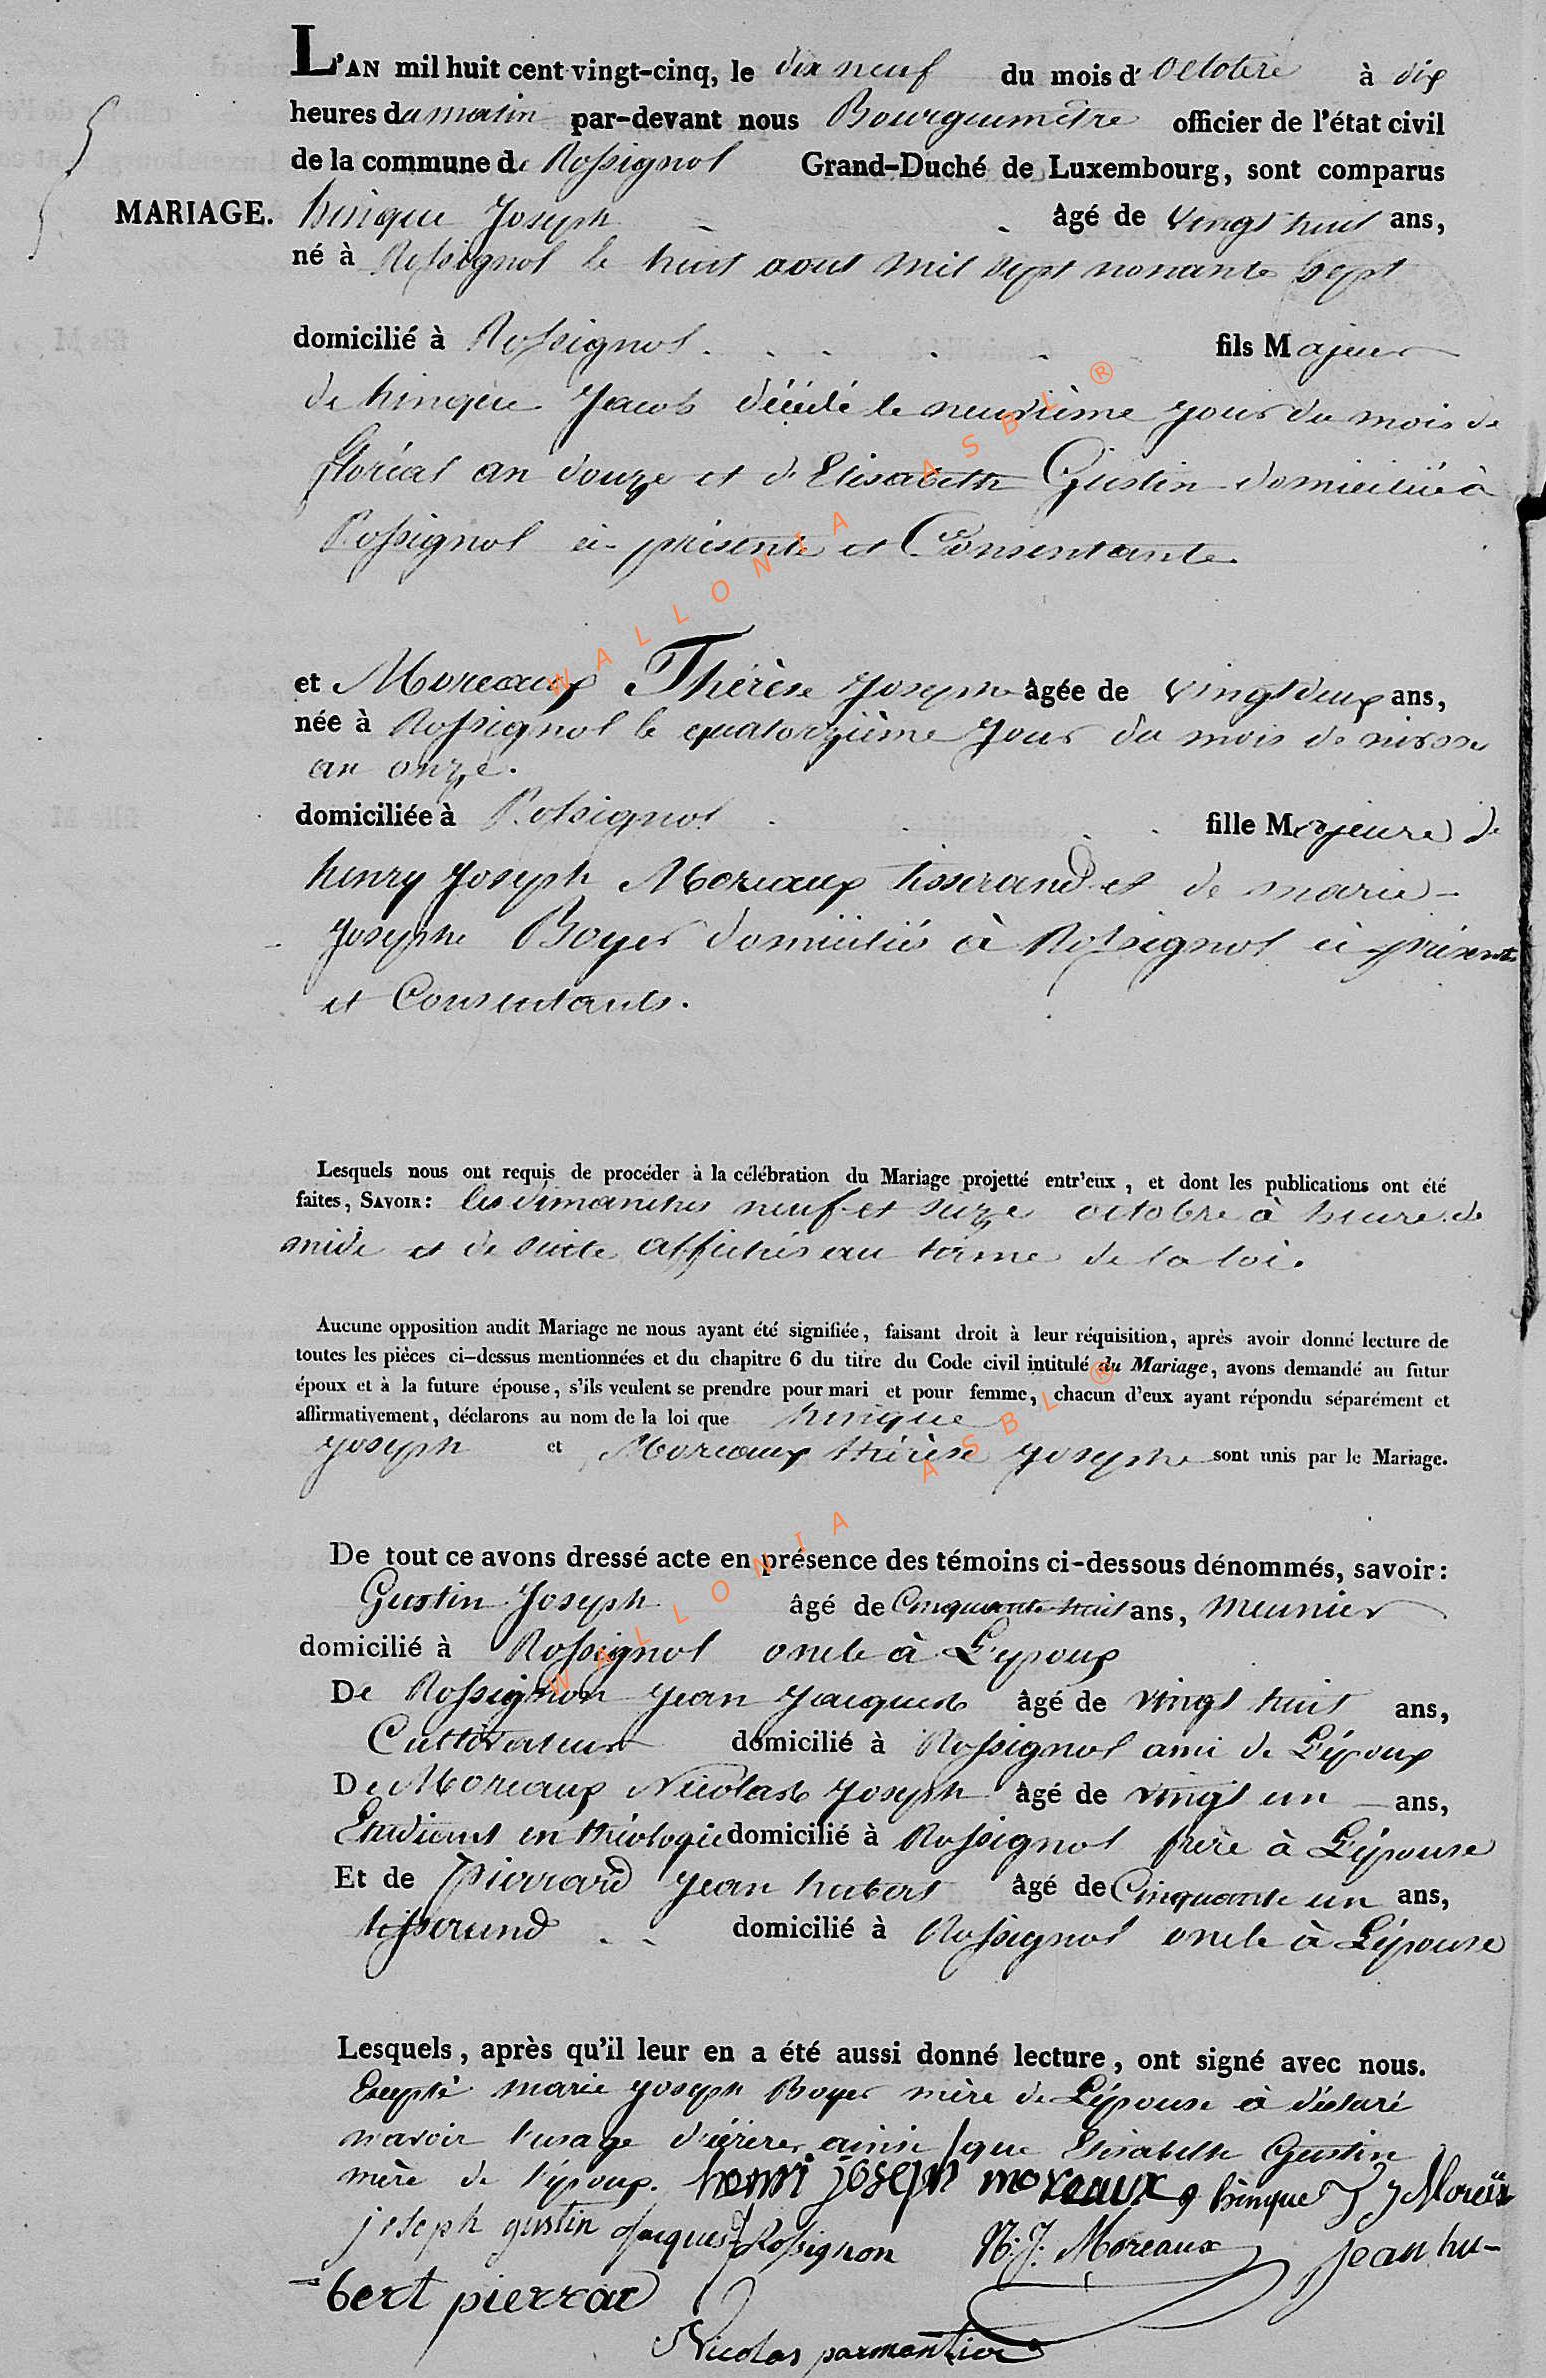 L'AN mil huit cent vingt-cinq, le dix neuf du mois d'Octobre à dix
heures du matin par-devant nous Bourguemêtre officier de l'état civil
de la commune de Rossignol Grand-Duché de Luxembourg, sont comparus
MARIAGE. hinque Joseph âgé de vingt huit ans,
né à Rossignol le huit aout mil sept nonante sept
domicilié à Rossignol fils Majeur
de hinque Jacob décédé le neuvième jour du mois de
floréal an douze et d'Elisabeth Gustin domiciliée à
Rossignol ci-présente et Consentante
et Moreaux Thérèse Josephe âgée de vingt deux ans,
née à Rossignol le quatorzième jour du mois de nivose
an onze.
domiciliée à Rossignol fille Majeure de
henry Joseph Moreaux tisserand et de marie-
Josephe Boyer domiciliés à Rossignol ci présents
et Consentants.
Lesquels nous ont requis de procéder à la célébration du Mariage projetté entr'eux, et dont les publications ont été
faites, SAVOIR: les dimanches neuf et seize octobre à heure de
midi et de suite affichés au terme de la loi.
Aucune opposition audit Mariage ne nous ayant été signifiée, faisant droit à leur réquisition, après avoir donné lecture de
toutes les pièces ci-dessus mentionnées et du chapitre 6 du titre du Code civil intitulé du Mariage, avons demandé au futur
époux et à la future épouse, s'ils veulent se prendre pour mari et pour femme, chacun d'eux ayant répondu séparément et
affirmativement, déclarons au nom de la loi que hinque
Joseph et Moreaux thérèse Josephe sont unis par le Mariage.
De tout ce avons dressé acte en présence des témoins ci-dessous dénommés, savoir:
Gustin Joseph âgé de Cinquante huit ans, meunier
domicilié à Rossignol oncle à L'epoux
De Rossignon Jean Jacques âgé de vingt huit ans,
Cultivateur domicilié à Rossignol ami de L'époux
De Moreaux Nicolas Joseph âgé de vingt un ans,
Etudiant en théologie domicilié à Rossignol frère à L'épouse
Et de Pierrard Jean hubert âgé de Cinquante un ans,
tisserand domicilié à Rossignol oncle à L'épouse
Lesquels, après qu'il leur en a été aussi donné lecture, ont signé avec nous.
Excepté marie joseph Boyer mère de L'épouse à déclaré
n'avoir l'usage d'écrire, ainsi que Elisabeth Gustin
mère de l'époux. henri joseph moreaux J hinque T J Moreaux
joseph gustin Jacques J Rossignon N: J: Moreaux jean hu-
-bert pierrard
Nicolas parmantier
WALLONIA ASBL ®
WALLONIA ASBL ®